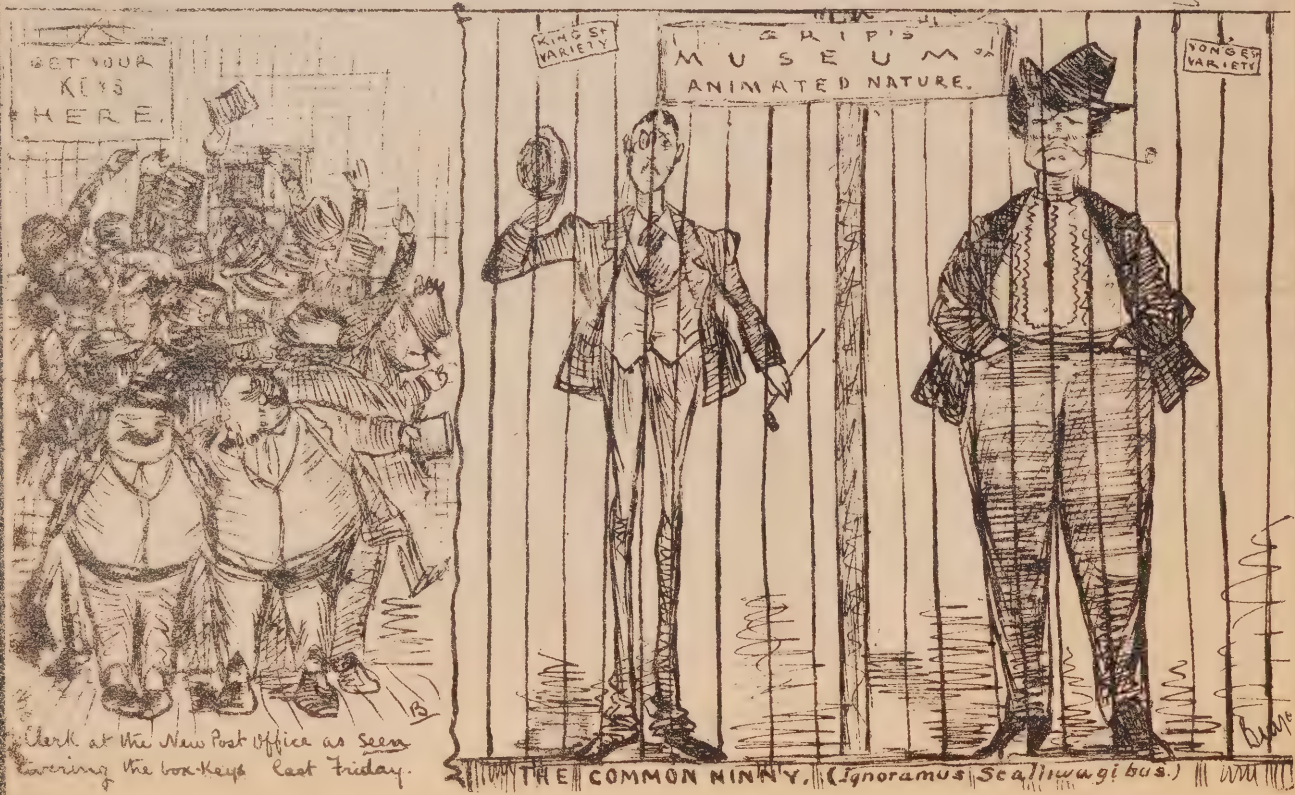 GET YOUR
KEYS
HERE.
Clerk at the New Post Office as seen
the box-keys last Friday.
KING ST
VARIETY
GRIP'S
MUSEUM OF
ANIMATED NATURE.
YONGE ST
VARIETY
B
THE COMMON NINNY. (Ignoramus Scalliwagibus.)